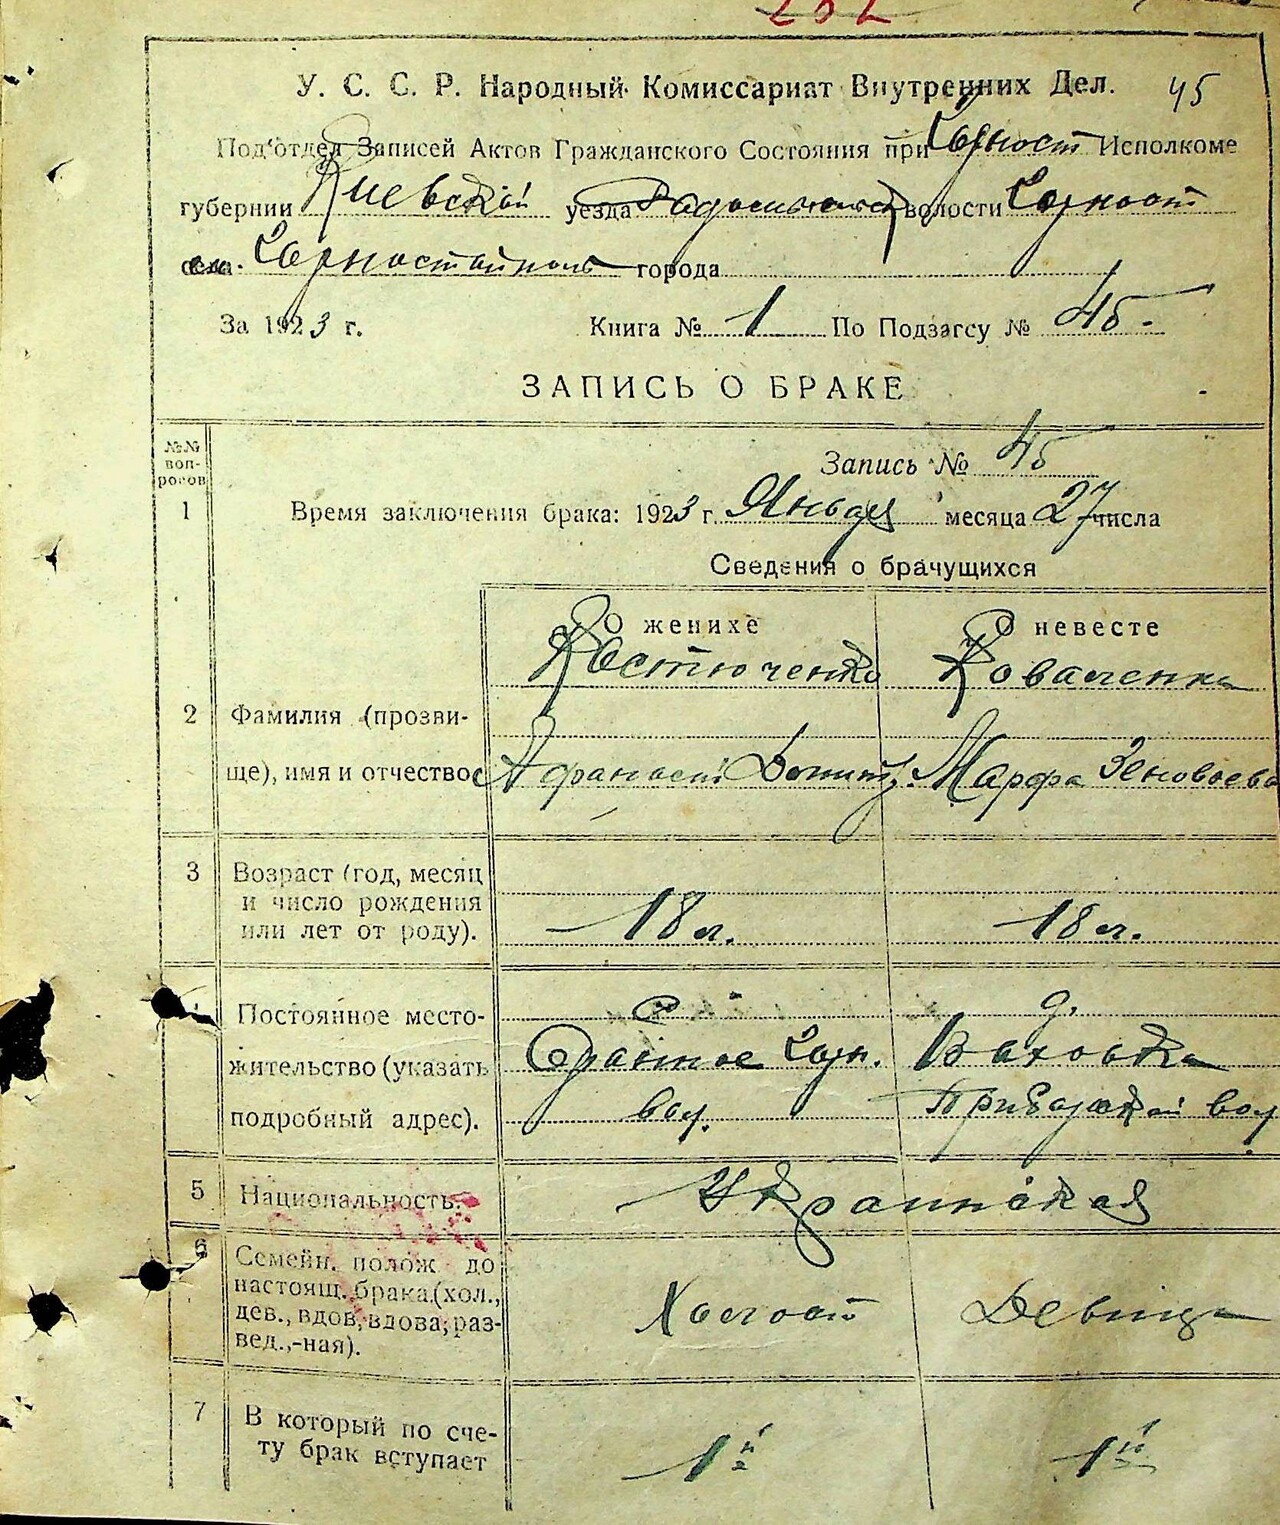 У. С. С. Р. Народный Комиссариат Внутренних Дел. 45
Под'отдел Записей Актов Гражданского Состояния при Горност Исполкоме
губернии Киевской уезда волости Горност
села Горностайполь города
За 1923 г. Книга № 1 По Подзагсу № 45.
ЗАПИСЬ О БРАКЕ
№№ воп-росов
Запись № 45
1 Время заключения брака: 1923 г. Января месяца 27 числа
Сведения о брачущихся
О женихе О невесте
Костюченко Коваленко
2 Фамилия (прозви-
ще), имя и отчество Афанасий Дмит. Марфа Зеновьева
3 Возраст (год, месяц
и число рождения
или лет от роду). 18 л. 18 л.
Постоянное место- с. д.
жительство (указать Горн. Ваховка
подробный адрес). вол. вол
5 Национальность. Украинская
6 Семейн. полож до
настоящ. брака (хол.,
дев., вдов, вдова, раз-
вед.,-ная). Холост Девица
7 В который по сче-
ту брак вступает 1й 1й